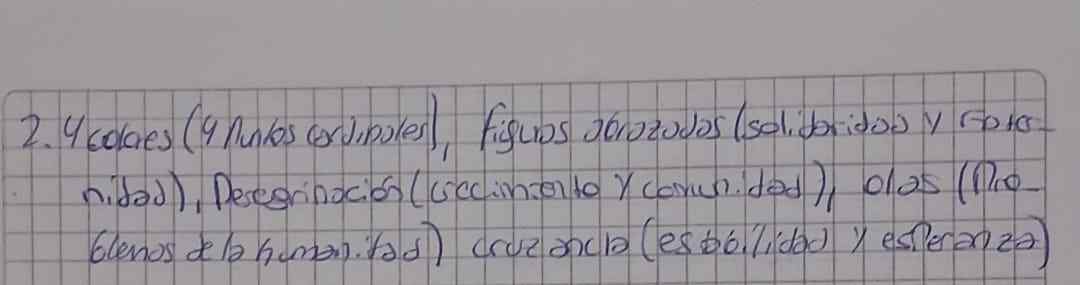 2. 4 colores (4 Puntos cardinales), figuras abrazadas (solidaridad y frater-
nidad), Peregrinación (crecimiento y comunidad), olas (Pro-
blemas de la humanidad) cruz ancla (estabilidad y esperanza)